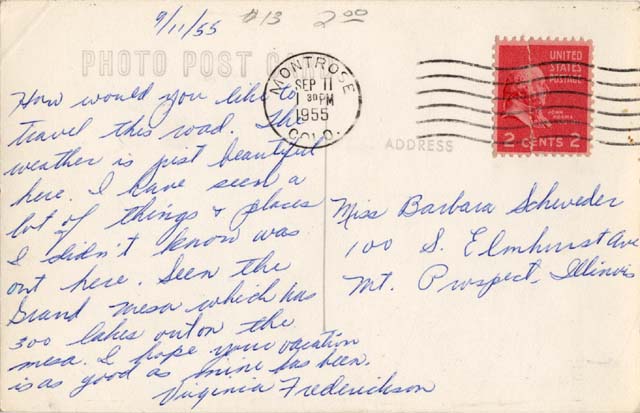 9/11/55 #13 2.00
PHOTO POST CARD
MONTROSE
SEP 11
1 30 PM
1955
COLO.
UNITED
STATES
POSTAGE
JOHN ADAMS
2 CENTS 2
ADDRESS
How would you like to
travel this road. The
weather is just beautiful
here. I have seen a
lot of things & places
I didn't know was
out here. Seen the
Grand mesa which has
300 lakes out on the
mesa. I hope your vacation
is as good as mine has been.
Virginia Frederickson
Miss Barbara Schweder
100 S. Elmhurst Ave
Mt. Prospect, Illinois